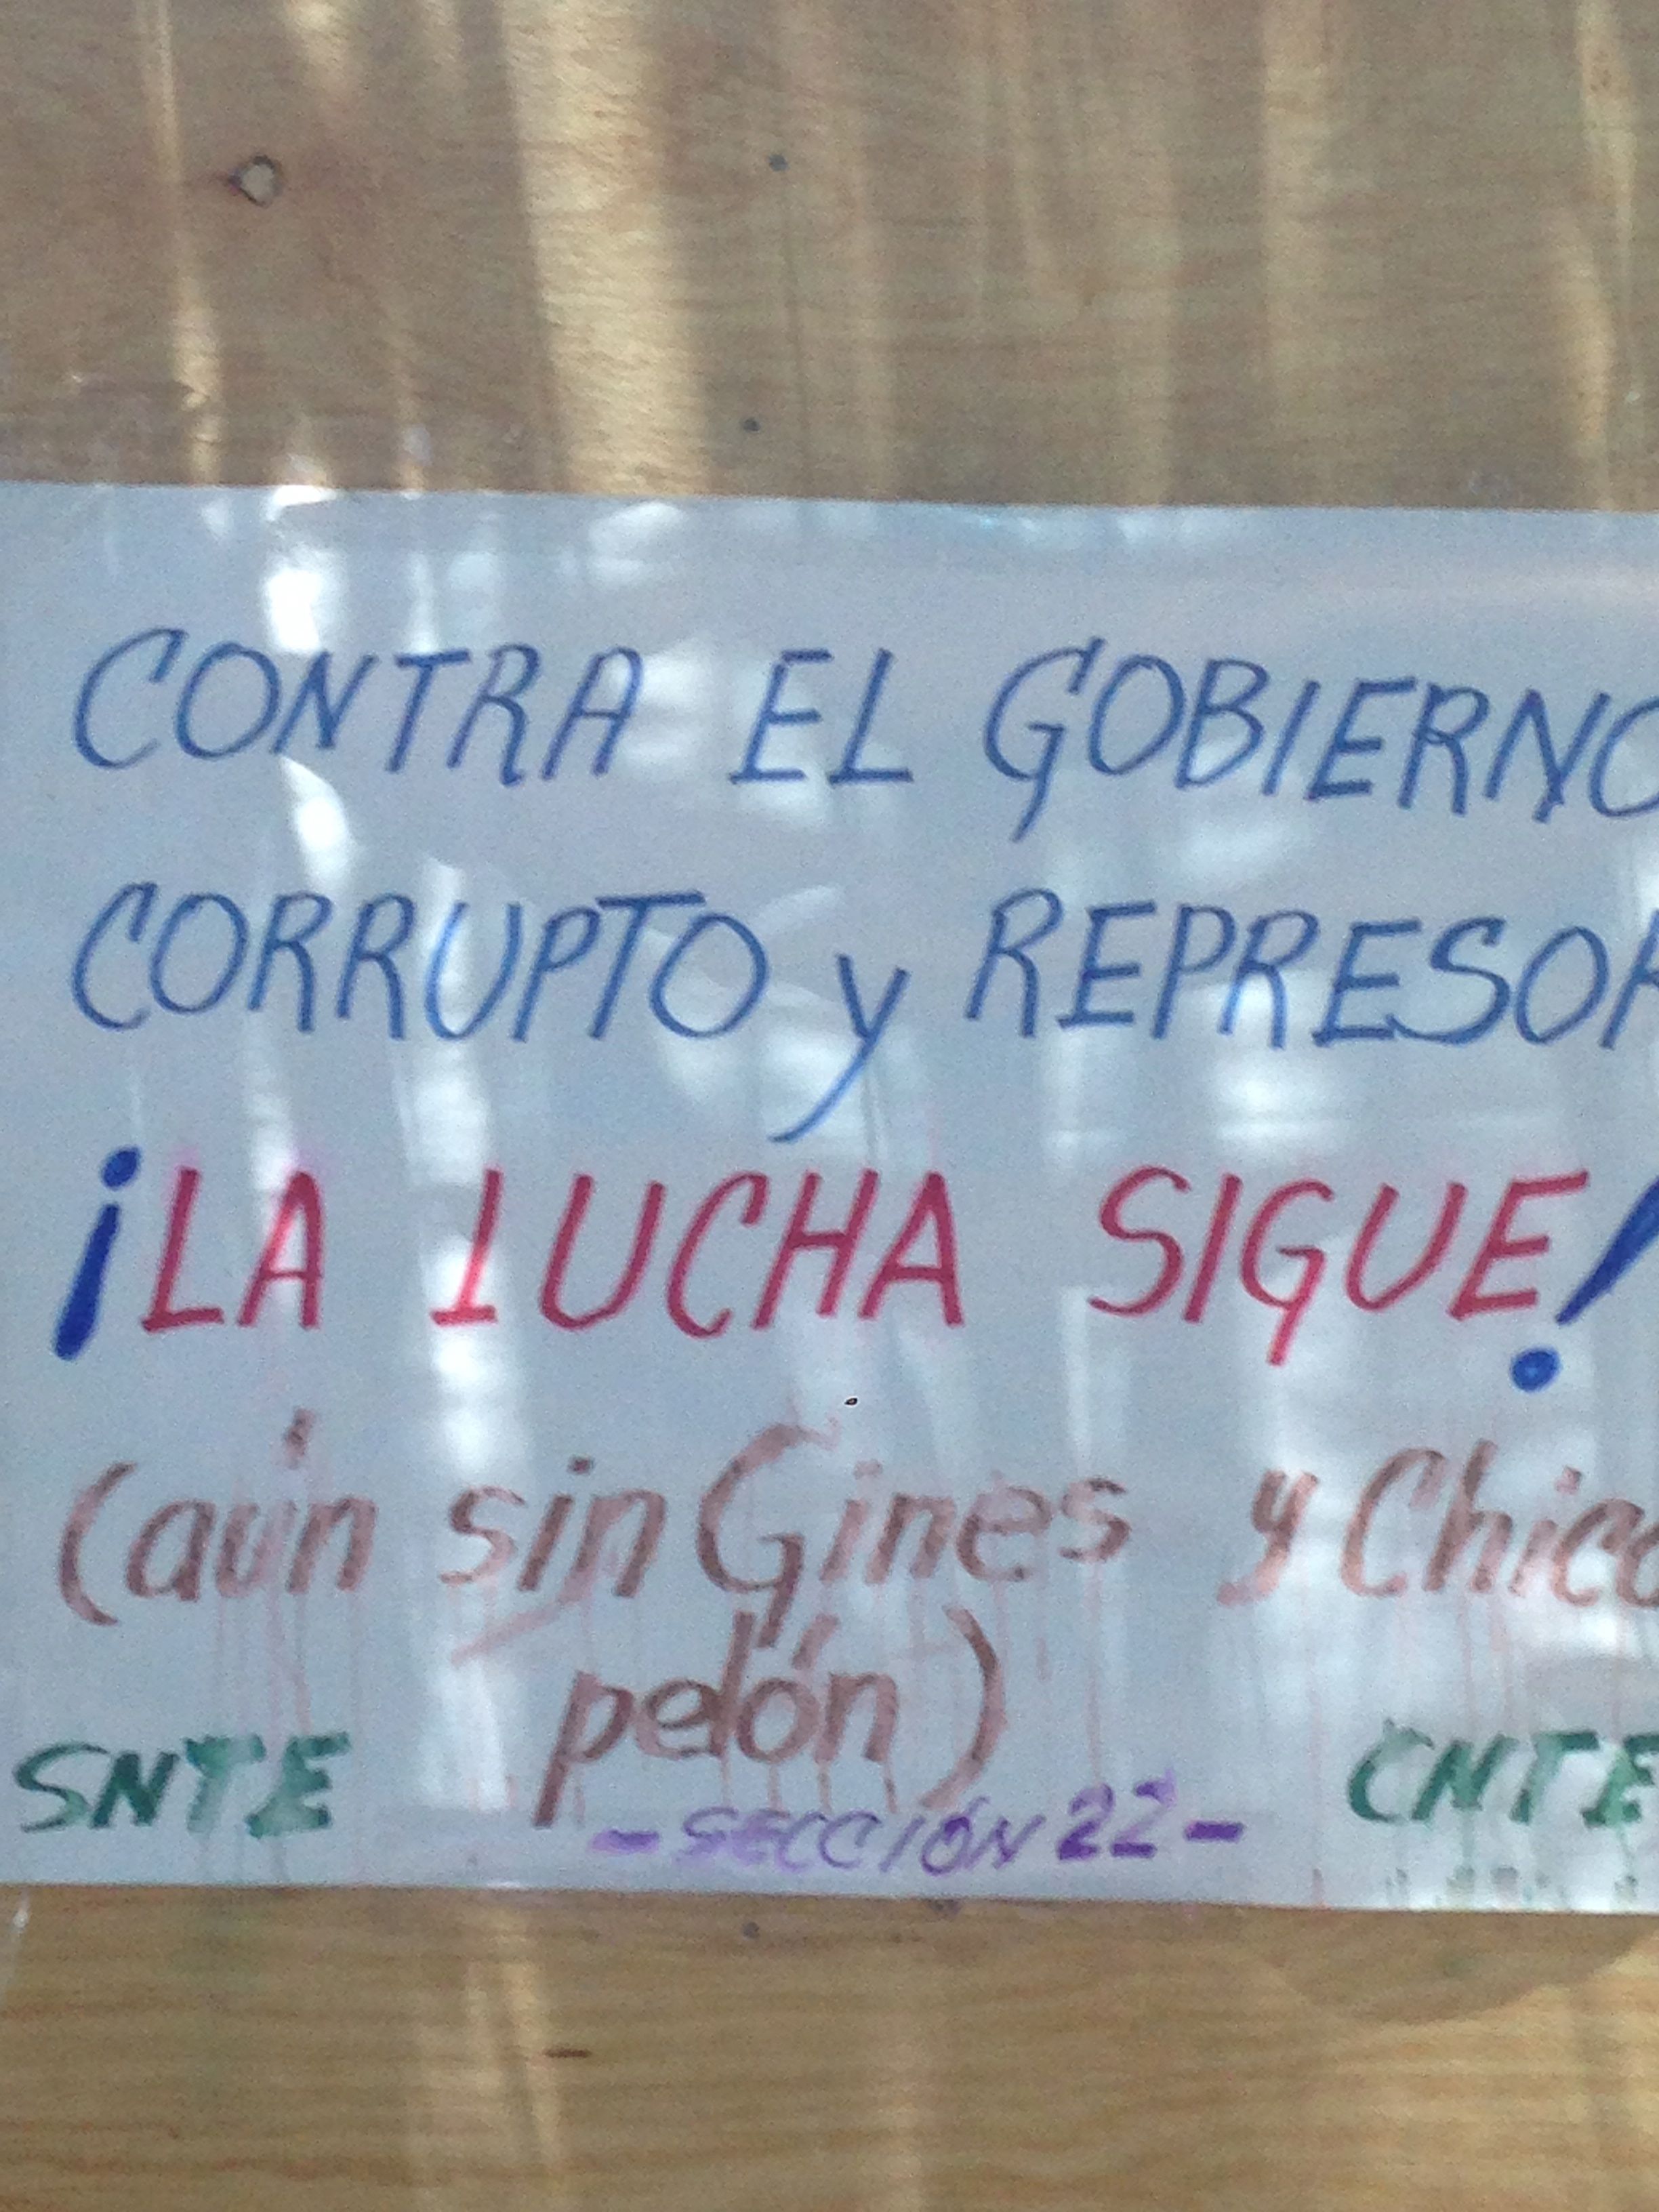 CONTRA EL GOBIERNO
CORRUPTO y REPRESOR
¡LA LUCHA SIGUE!
(aún sin Gines y Chico
pelón)
SNTE CNTE
-SECCIÓN 22-